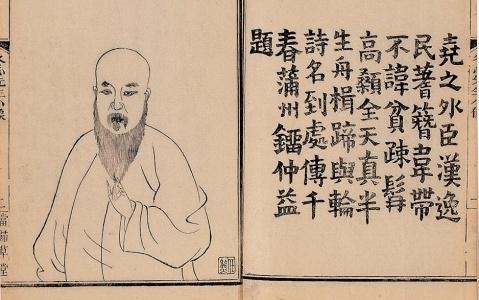 堯之外臣漢逸
民蓍簪韋帶
不諱貧疎髯
高顙全天真半
生舟楫蹄與輪
詩名到處傳千
春蒲州鐂仲益
題
草堂